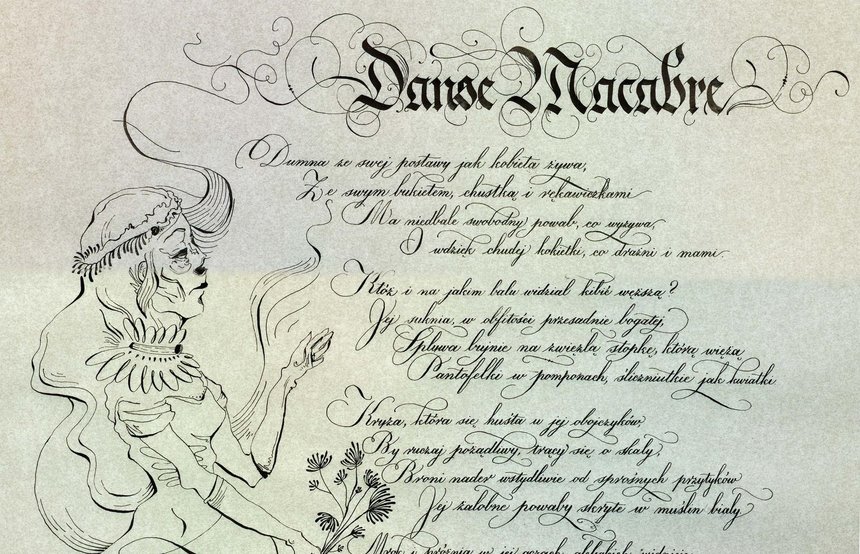 Danse Macabre
Dumna ze swej postawy jak kobieta żywa,
Ze swym bukietem, chustką i rękawiczkami
Ma niedbale swobodny powab, co wyzywa,
O wdzięk chudej kokietki, co drażni i mami.
Któż i na jakim balu widział kibić węższą?
Jej suknia, w obfitości przesadnie bogatej,
Spływa bujnie na zwięzłą stopkę, którą więżą
Pantofelki w pomponach, śliczniutkie jak kwiatki
Kryza, która się huśta u jej obojczyków,
By ruczaj pożądliwy, trący się o skały,
Broni nader wstydliwie od sprośnych przytyków
Jej żałobne powaby skryte w muślin biały
Mrok i próżnia w jej oczach